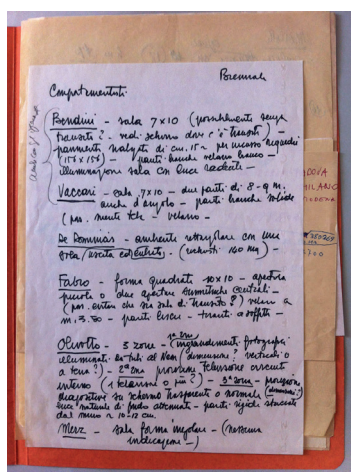 Biennale
Comportamentisti
Bendini - sala 7x10 (possibilmente senza
transito? - vedi schema dove c'è transito) -
(156 x 156) - pareti bianche velario bianco -
illuminazione sala con luce radente -
Vaccari - sala 7x10 - due pareti di 8-9 m.
anche d'angolo - pareti bianche solide
(pos. niente tele - velario -
De Dominicis - ambiente rettangolare con una
sola (uscita ed) entrata - (richiesti 160 mq) -
Fabro - forma quadrata 10x10 - apertura
piccola o due aperture simmetriche centrali -
(pos. evitare che sia sala di transito?) velario a
m. 3.50 - pareti lisce - tiranti a soffitto -
Olivotto - 3 zone - 1a zona (ingrandimenti fotografici
illuminati) (dimensioni? verticali o
a terra?) 2a zona proiezione televisione circuito
interno (1 televisore o più?) - 3a zona - proiezione
diapositive su schermo trasparente o normale (dimensioni?)
luce naturale di fondo attenuata - pareti rigide staccate
dal muro 10-12 cm.
Merz - sala forma irregolare - (nessuna
indicazione -)
MILANO